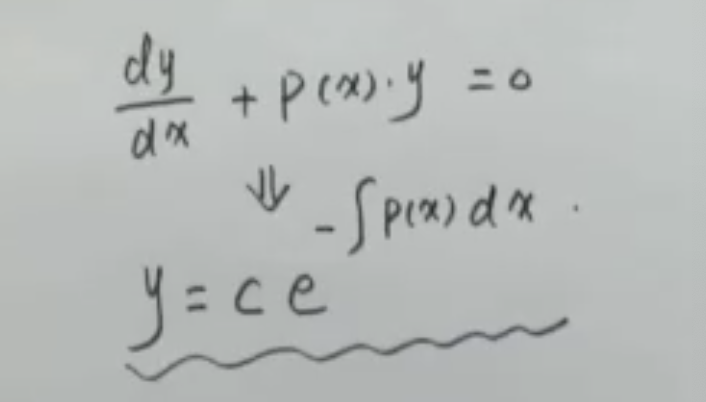 dy/dx + p(x)·y = 0
⇓
y = c e^{-∫p(x)dx}.